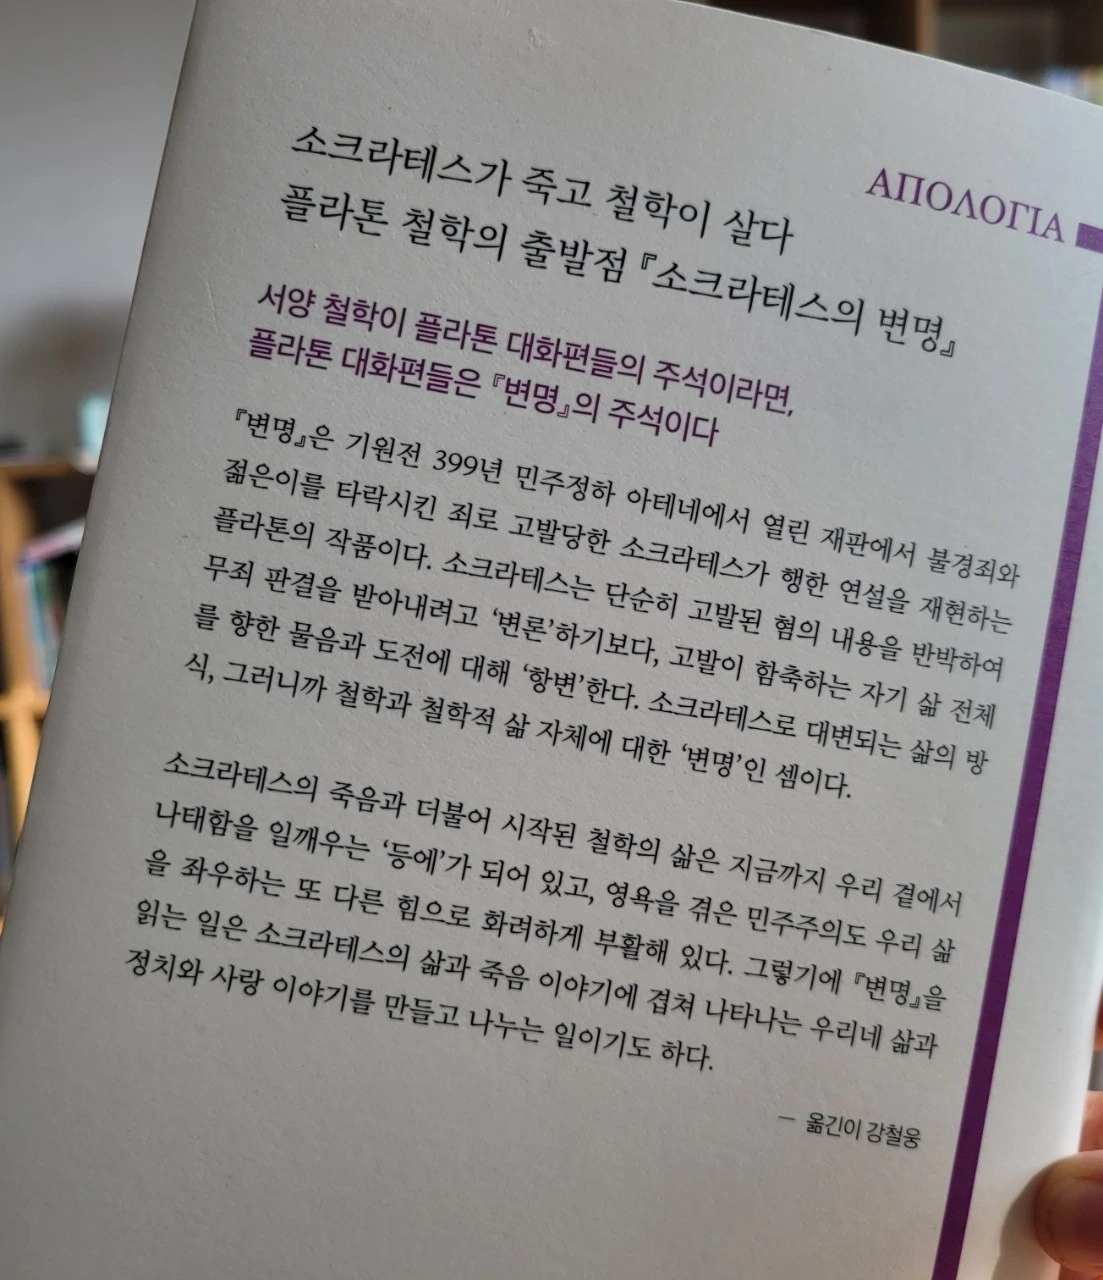 ΑΠΟΛΟΓΙΑ
소크라테스가 죽고 철학이 살다
플라톤 철학의 출발점 『소크라테스의 변명』
서양 철학이 플라톤 대화편들의 주석이라면,
플라톤 대화편들은 『변명』의 주석이다
『변명』은 기원전 399년 민주정하 아테네에서 열린 재판에서 불경죄와
젊은이를 타락시킨 죄로 고발당한 소크라테스가 행한 연설을 재현하는
플라톤의 작품이다. 소크라테스는 단순히 고발된 혐의 내용을 반박하여
무죄 판결을 받아내려고 ‘변론’하기보다, 고발이 함축하는 자기 삶 전체
를 향한 물음과 도전에 대해 ‘항변’한다. 소크라테스로 대변되는 삶의 방
식, 그러니까 철학과 철학적 삶 자체에 대한 ‘변명’인 셈이다.
소크라테스의 죽음과 더불어 시작된 철학의 삶은 지금까지 우리 곁에서
나태함을 일깨우는 ‘등에’가 되어 있고, 영욕을 겪은 민주주의도 우리 삶
을 좌우하는 또 다른 힘으로 화려하게 부활해 있다. 그렇기에 『변명』을
읽는 일은 소크라테스의 삶과 죽음 이야기에 겹쳐 나타나는 우리네 삶과
정치와 사랑 이야기를 만들고 나누는 일이기도 하다.
— 옮긴이 강철웅